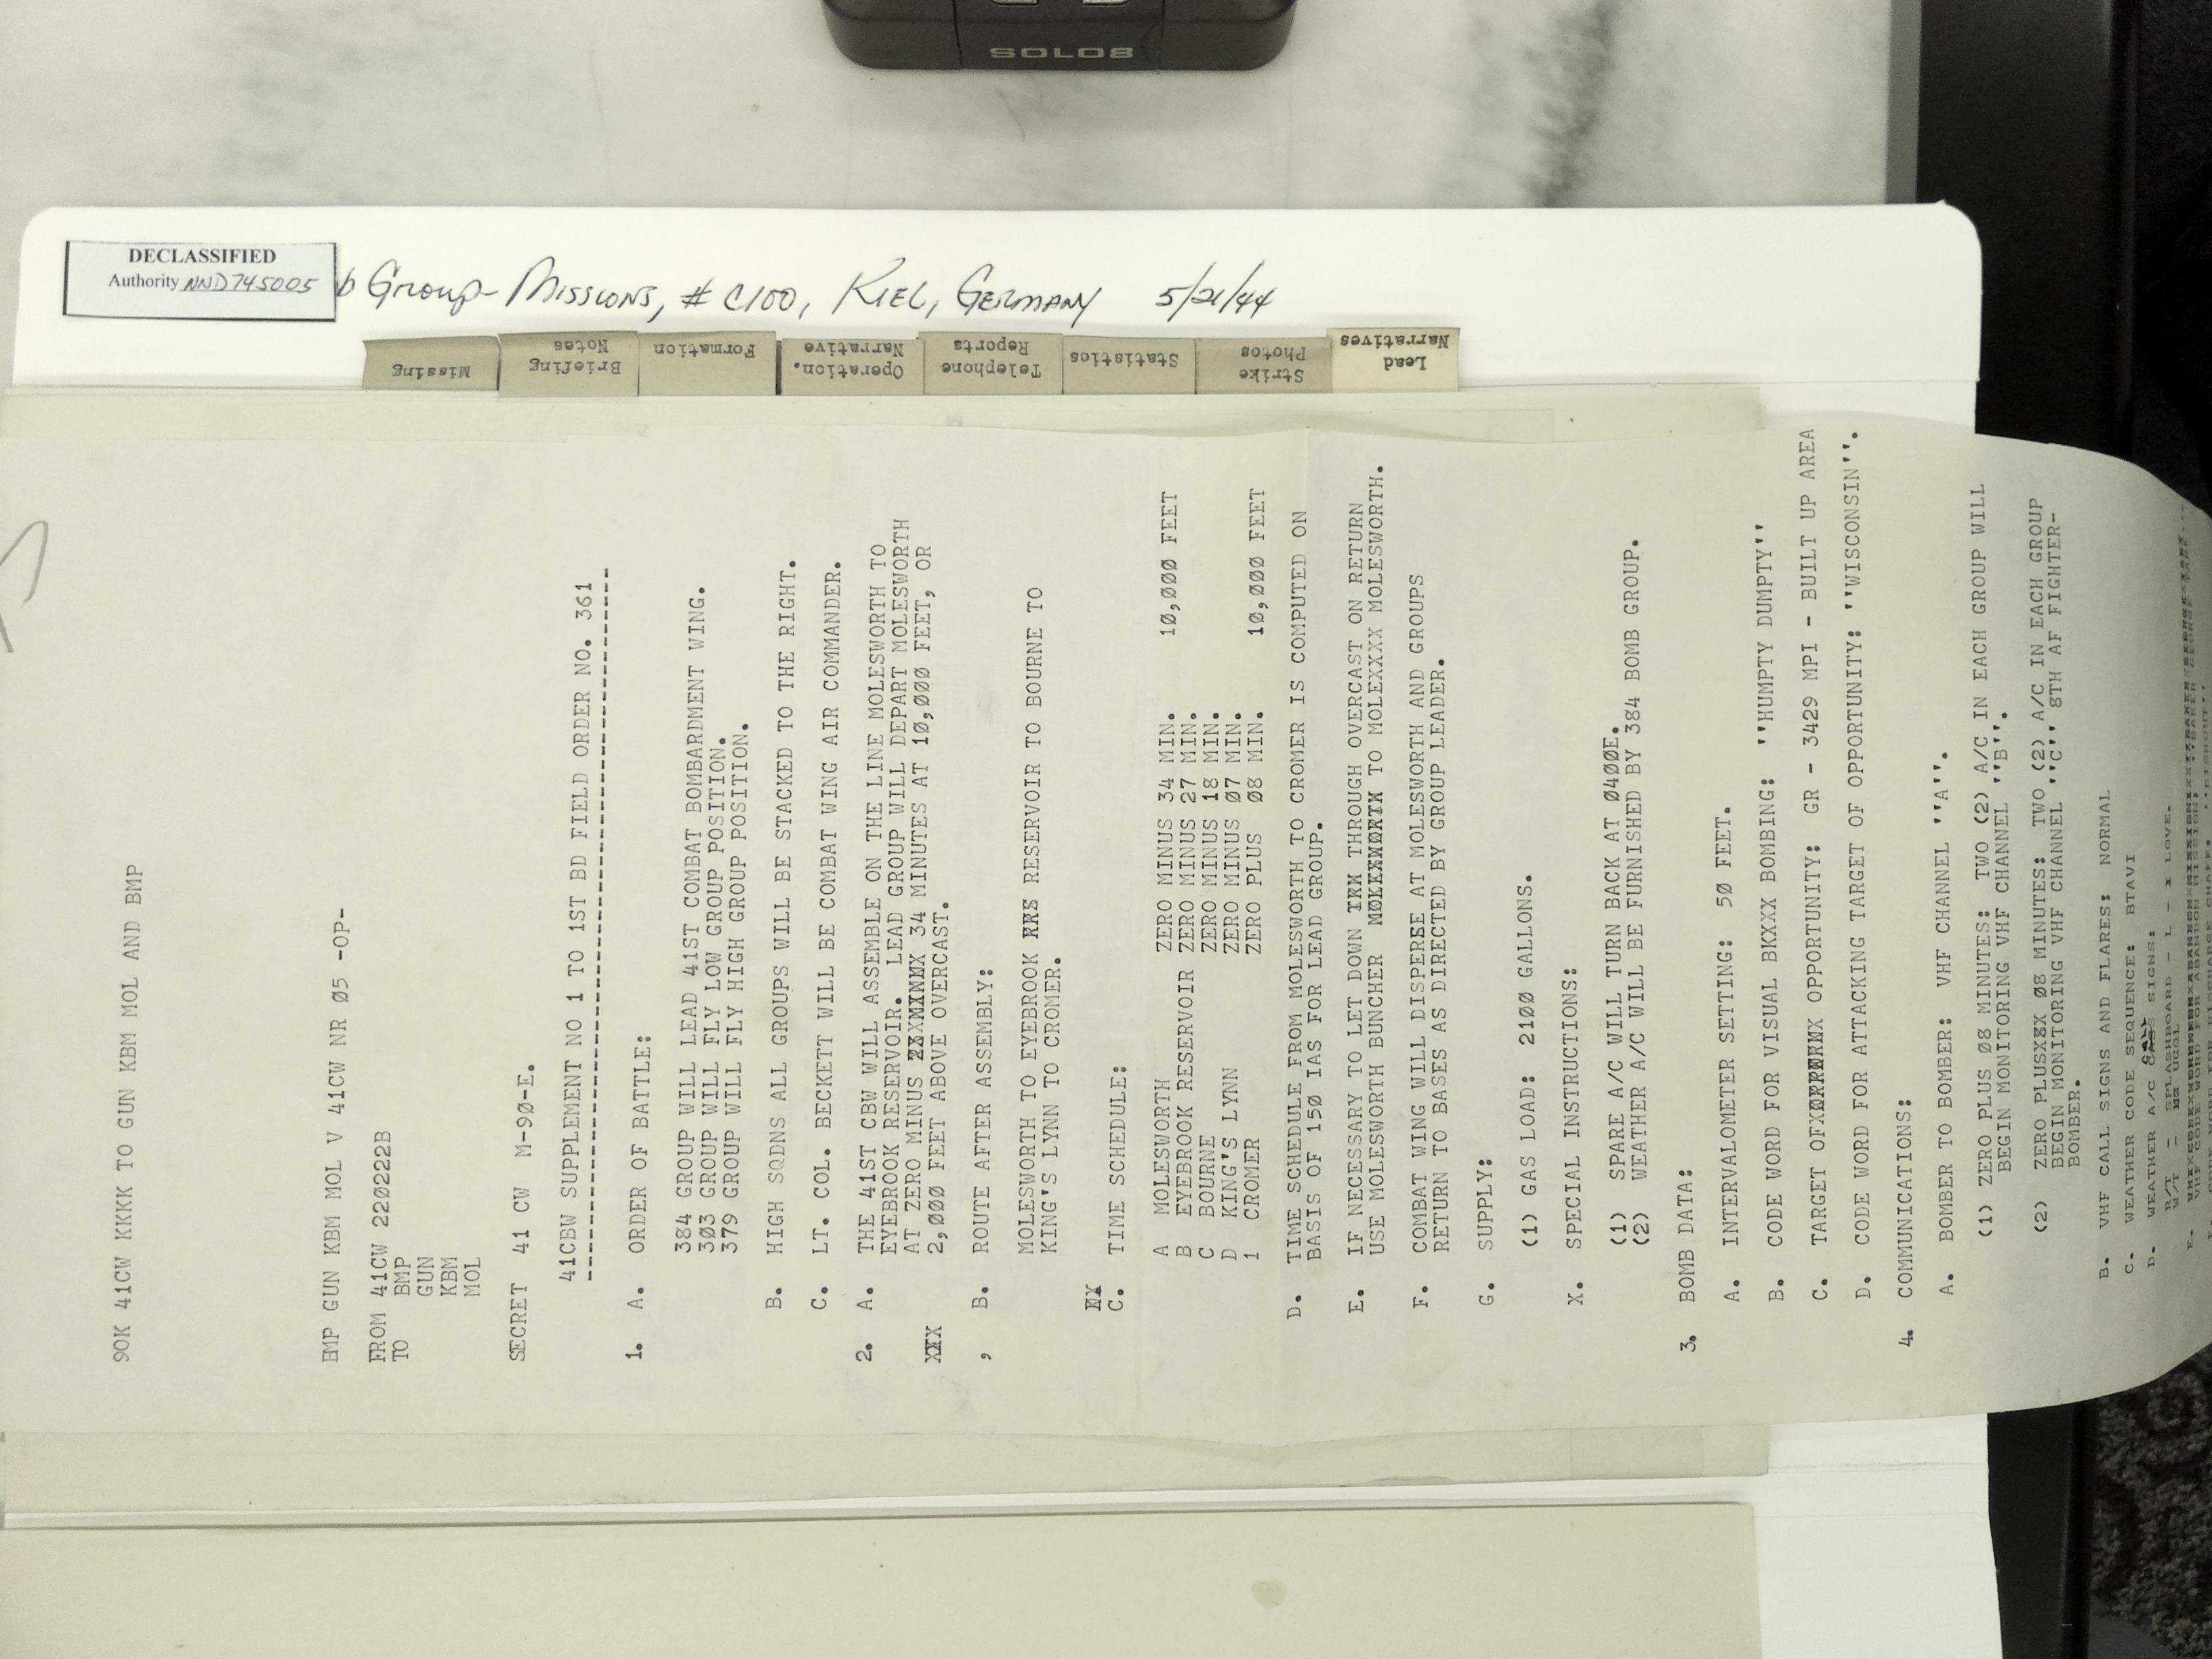 SOLO8
DECLASSIFIED
Authority NND 745005
b Group - Missions, # C100, Kiel, Germany
Missing
Briefing
Notes
Formation
Operation.
Narrative
Telephone
Reports
Statistics
Strike
Photos
Lead
Narratives
9OK 41CW KKKK TO GUN KBM MOL AND BMP
BMP GUN KBM MOL V 41CW NR Ø5 -OP-
FROM 41CW 22Ø222B
TO BMP
GUN
KBM
MOL
SECRET 41 CW M-9Ø-E.
41CBW SUPPLEMENT NO 1 TO 1ST BD FIELD ORDER NO. 361
1. A. ORDER OF BATTLE:
384 GROUP WILL LEAD 41ST COMBAT BOMBARDMENT WING.
3Ø3 GROUP WILL FLY LOW GROUP POSITION.
379 GROUP WILL FLY HIGH GROUP POSITION.
B. HIGH SQDNS ALL GROUPS WILL BE STACKED TO THE RIGHT.
C. LT. COL. BECKETT WILL BE COMBAT WING AIR COMMANDER.
2. A. THE 41ST CBW WILL ASSEMBLE ON THE LINE MOLESWORTH TO
EYEBROOK RESERVOIR. LEAD GROUP WILL DEPART MOLESWORTH
AT ZERO MINUS 34 MINUTES AT 1Ø,ØØØ FEET, OR
2,ØØØ FEET ABOVE OVERCAST.
, B. ROUTE AFTER ASSEMBLY:
MOLESWORTH TO EYEBROOK RESERVOIR TO BOURNE TO
KING'S LYNN TO CROMER.
C. TIME SCHEDULE:
A MOLESWORTH ZERO MINUS 34 MIN. 1Ø,ØØØ FEET
B EYEBROOK RESERVOIR ZERO MINUS 27 MIN.
C BOURNE ZERO MINUS 18 MIN.
D KING'S LYNN ZERO MINUS Ø7 MIN.
1 CROMER ZERO PLUS Ø8 MIN. 1Ø,ØØØ FEET
D. TIME SCHEDULE FROM MOLESWORTH TO CROMER IS COMPUTED ON
BASIS OF 15Ø IAS FOR LEAD GROUP.
E. IF NECESSARY TO LET DOWN THROUGH OVERCAST ON RETURN
USE MOLESWORTH BUNCHER TO MOLEXXXXX MOLESWORTH.
F. COMBAT WING WILL DISPERSE AT MOLESWORTH AND GROUPS
RETURN TO BASES AS DIRECTED BY GROUP LEADER.
G. SUPPLY:
(1) GAS LOAD: 21ØØ GALLONS.
X. SPECIAL INSTRUCTIONS:
(1) SPARE A/C WILL TURN BACK AT Ø4ØØE.
(2) WEATHER A/C WILL BE FURNISHED BY 384 BOMB GROUP.
3. BOMB DATA:
A. INTERVALOMETER SETTING: 5Ø FEET.
B. CODE WORD FOR VISUAL BKXXX BOMBING: ''HUMPTY DUMPTY''
C. TARGET OF OPPORTUNITY: GR - 3429 MPI - BUILT UP AREA
D. CODE WORD FOR ATTACKING TARGET OF OPPORTUNITY: ''WISCONSIN''.
4. COMMUNICATIONS:
A. BOMBER TO BOMBER: VHF CHANNEL ''A''.
(1) ZERO PLUS Ø8 MINUTES: TWO (2) A/C IN EACH GROUP WILL
BEGIN MONITORING VHF CHANNEL ''B''.
(2) ZERO Ø8 MINUTES: TWO (2) A/C IN EACH GROUP
BEGIN MONITORING VHF CHANNEL ''C'' 8TH AF FIGHTER-
BOMBER.
B. VHF CALL SIGNS AND FLARES: NORMAL
C. WEATHER CODE SEQUENCE: BTAVI
D. WEATHER A/C SIGNS:
R/T - SPLASHBOARD - L - LOVE.
W/T - UGOL